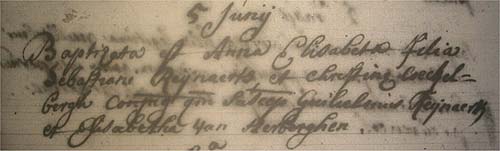 5 Junij
Baptizata est Anna Elisabeth filia
Sebastiani Reijnaerts et Christinę
bergh Conjug quam Guilielmus Reijnaerts
et Elisabetha Van Herberghen